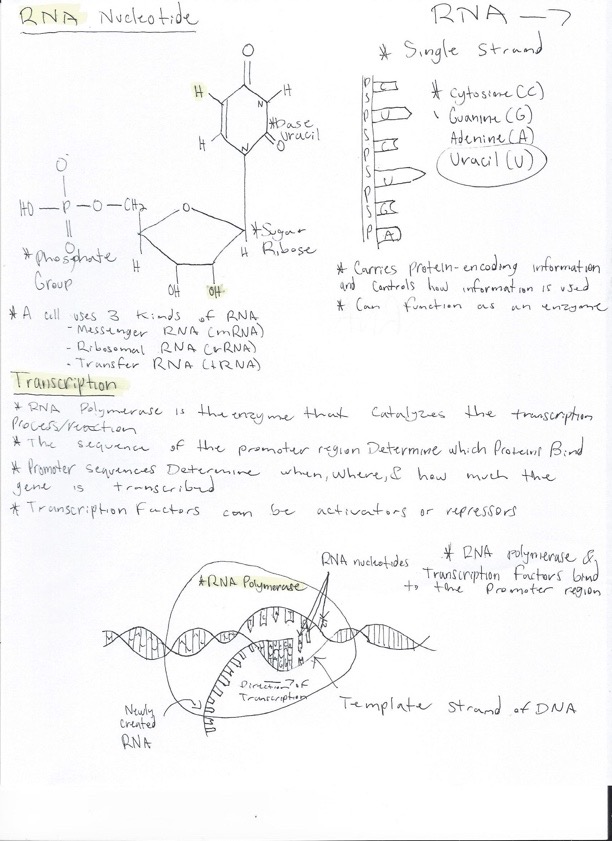 RNA Nucleotide
RNA →
* Single Strand
O
H
N
H
*Base
Uracil
H
N
O
O⁻
HO-P-O-CH₂
O
O
*Phosphate
Group
H
H
*Sugar
Ribose
OH
OH
P
S
P
S
P
S
P
S
P
C
U
C
U
G
A
* Cytosine (C)
Guanine (G)
Adenine (A)
Uracil (U)
* Carries protein-encoding information
and controls how information is used
* Can function as an enzyme
* A cell uses 3 kinds of RNA
- Messenger RNA (mRNA)
- Ribosomal RNA (rRNA)
- Transfer RNA (tRNA)
Transcription
* RNA Polymerase is the enzyme that catalyzes the transcription
Process/reaction
* The sequence of the promoter region Determine which Proteins Bind
* Promoter sequences Determine when, where, & how much the
gene is transcribed
* Transcription Factors can be activators or repressors
RNA nucleotides
* RNA polymerase &
Transcription factors bind
to the Promoter region
*RNA Polymerase
Direction of
Transcription
Newly
created
RNA
Template strand of DNA